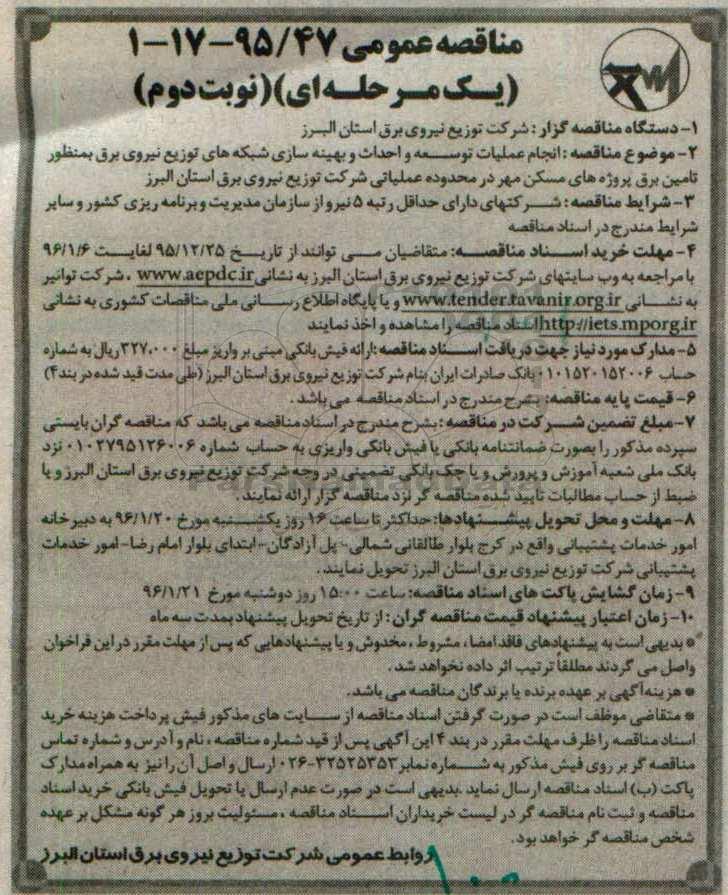 مناقصه عمومی ۹۵/۴۷-۱۷-۱
(یک مرحله ای)(نوبت دوم)
۱- دستگاه مناقصه گزار: شرکت توزیع نیروی برق استان البرز
۲- موضوع مناقصه: انجام عملیات توسعه و احداث و بهینه سازی شبکه های توزیع نیروی برق بمنظور
تامین برق پروژه های مسکن مهر در محدوده عملیاتی شرکت توزیع نیروی برق استان البرز
۳- شرایط مناقصه: شرکتهای دارای حداقل رتبه ۵ نیرو از سازمان مدیریت و برنامه ریزی کشور و سایر
شرایط مندرج در اسناد مناقصه
۴- مهلت خرید اسناد مناقصه: متقاضیان می توانند از تاریخ ۹۵/۱۲/۲۵ لغایت ۹۶/۱/۶
با مراجعه به وب سایتهای شرکت توزیع نیروی برق استان البرز به نشانی www.aepdc.ir ، شرکت توانیر
به نشانی www.tender.tavanir.org.ir و یا پایگاه اطلاع رسانی ملی مناقصات کشوری به نشانی
http://iets.mporg.ir اسناد مناقصه را مشاهده و اخذ نمایند
۵- مدارک مورد نیاز جهت دریافت اسناد مناقصه: ارائه فیش بانکی مبنی بر واریز مبلغ ۳۲۷،۰۰۰ ریال به شماره
حساب ۰۱۰۱۵۲۰۱۵۲۰۰۶ بانک صادرات ایران بنام شرکت توزیع نیروی برق استان البرز (طی مدت قید شده در بند ۴)
۶- قیمت پایه مناقصه: بشرح مندرج در اسناد مناقصه می باشد.
۷- مبلغ تضمین شرکت در مناقصه: بشرح مندرج در اسناد مناقصه می باشد که مناقصه گران بایستی
سپرده مذکور را بصورت ضمانتنامه بانکی یا فیش بانکی واریزی به حساب شماره ۰۱۰۲۷۹۵۱۲۶۰۰۶ نزد
بانک ملی شعبه آموزش و پرورش و یا چک بانکی تضمینی در وجه شرکت توزیع نیروی برق استان البرز و یا
ضبط از حساب مطالبات تایید شده مناقصه گر نزد مناقصه گزار ارائه نمایند.
۸- مهلت و محل تحویل پیشنهادها: حداکثر تا ساعت ۱۶ روز یکشنبه مورخ ۹۶/۱/۲۰ به دبیرخانه
امور خدمات پشتیبانی واقع در کرج بلوار طالقانی شمالی- پل آزادگان- ابتدای بلوار امام رضا- امور خدمات
پشتیبانی شرکت توزیع نیروی برق استان البرز تحویل نمایند.
۹- زمان گشایش پاکت های اسناد مناقصه: ساعت ۱۵:۰۰ روز دوشنبه مورخ ۹۶/۱/۲۱
۱۰- زمان اعتبار پیشنهاد قیمت مناقصه گران: از تاریخ تحویل پیشنهاد بمدت سه ماه
* بدیهی است به پیشنهادهای فاقد امضا، مشروط، مخدوش و یا پیشنهادهایی که پس از مهلت مقرر در این فراخوان
واصل می گردند مطلقاً ترتیب اثر داده نخواهد شد.
* هزینه آگهی بر عهده برنده یا برندگان مناقصه می باشد.
* متقاضی موظف است در صورت گرفتن اسناد مناقصه از سایت های مذکور فیش پرداخت هزینه خرید
اسناد مناقصه را ظرف مهلت مقرر در بند ۴ این آگهی پس از قید شماره مناقصه، نام و آدرس و شماره تماس
مناقصه گر بر روی فیش مذکور به شماره نمابر ۳۲۵۲۵۳۵۳-۰۲۶ ارسال و اصل آن را نیز به همراه مدارک
پاکت (ب) اسناد مناقصه ارسال نماید. بدیهی است در صورت عدم ارسال یا تحویل فیش بانکی خرید اسناد
مناقصه و ثبت نام مناقصه گر در لیست خریداران اسناد مناقصه، مسئولیت بروز هر گونه مشکل بر عهده
شخص مناقصه گر خواهد بود.
روابط عمومی شرکت توزیع نیروی برق استان البرز